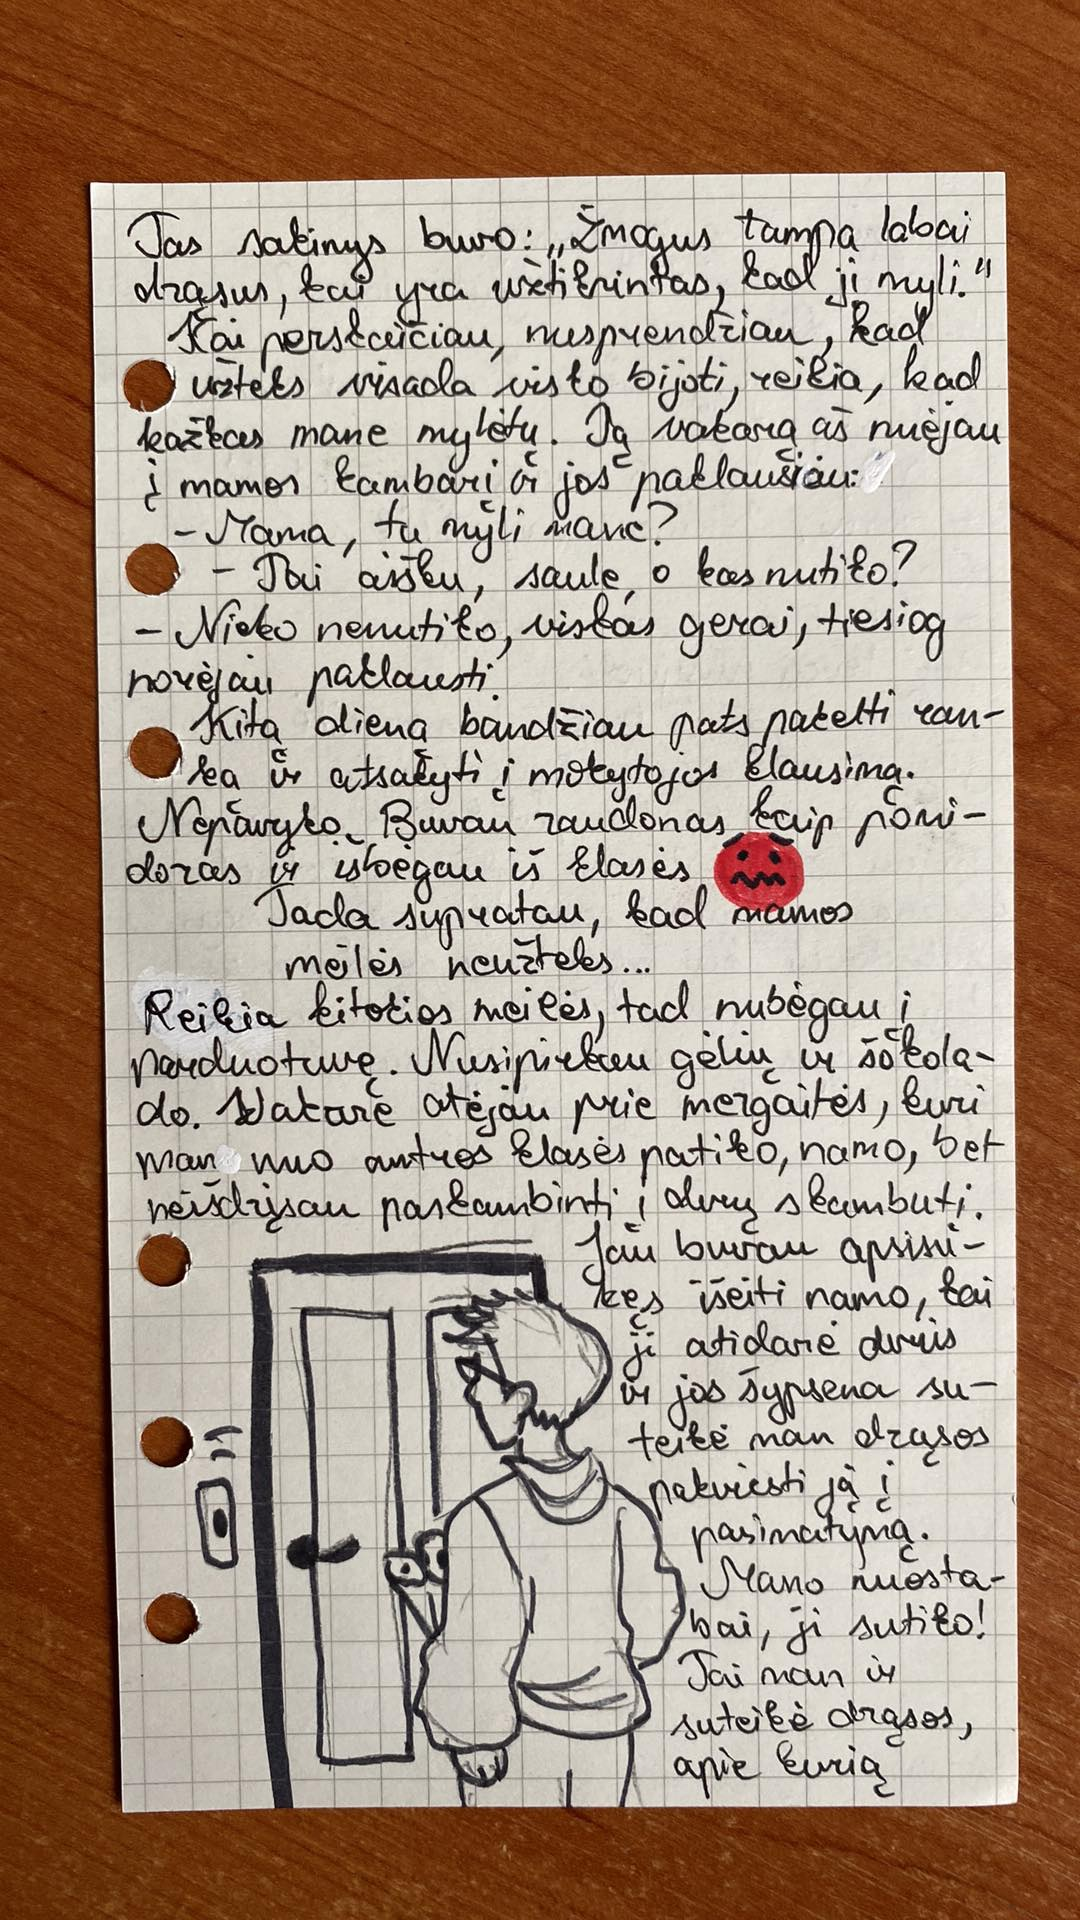 Tas sakinys buvo: „Žmogus tampa labai
drąsus, kai yra užtikrintas, kad jį myli."
Kai perskaičiau, nusprendžiau, kad
užteks visada visko bijoti, reikia, kad
kažkas mane mylėtų. Tą vakarą aš nuėjau
į mamos kambarį ir jos paklausiau:
- Mama, tu myli mane?
- Tai aišku, saule, o kas nutiko?
- Nieko nenutiko, viskas gerai, tiesiog
norėjau paklausti.
Kitą dieną bandžiau pats pakelti ran-
ką ir atsakyti į mokytojos klausimą.
Nepavyko. Buvau raudonas kaip pomi-
doras ir išbėgau iš klasės
Tada supratau, kad mamos
meilės neužteks...
Reikia kitokios meilės, tad nubėgau į
parduotuvę. Nusipirkau gėlių ir šokola-
do. Vakare atėjau prie mergaitės, kuri
man nuo antros klasės patiko, namo, bet
neišdrįsau paskambinti į durų skambutį.
Jau buvau apsisu-
kęs išeiti namo, kai
ji atidarė duris
ir jos šypsena su-
teikė man drąsos
pakviesti ją į
pasimatymą.
Mano nuosta-
bai, ji sutiko!
Tai man ir
suteikė drąsos,
apie kurią